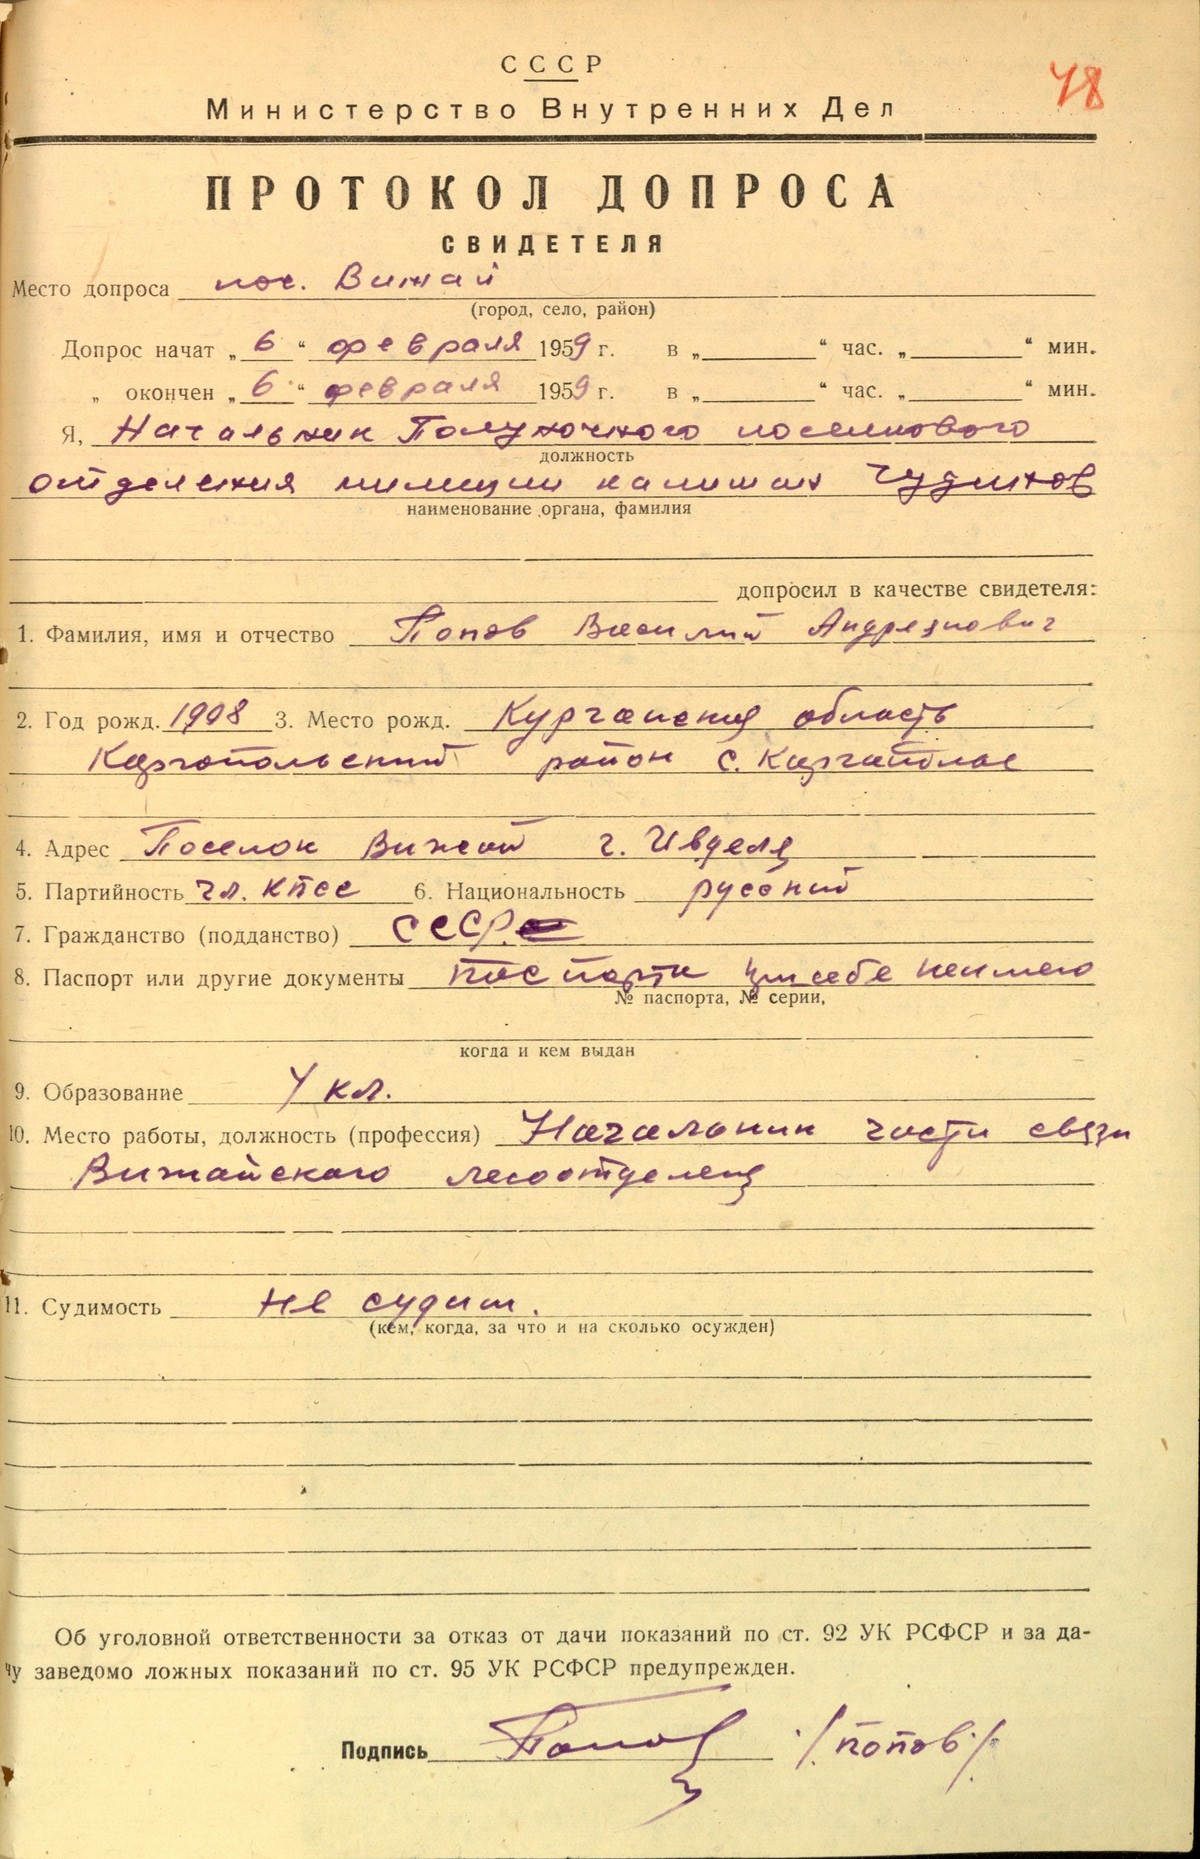 СССР
48
Министерство Внутренних Дел
ПРОТОКОЛ ДОПРОСА
СВИДЕТЕЛЯ
Место допроса пос. Вижай
(город, село, район)
Допрос начат „6“ февраля 1959 г. в „____“ час. „____“ мин.
„ окончен „6“ февраля 1959 г. в „____“ час. „____“ мин.
Я, Начальник Полуночного поселкового
должность
отделения милиции капитан Чудинов
наименование органа, фамилия
допросил в качестве свидетеля:
1. Фамилия, имя и отчество Попов Василий Андреянович
2. Год рожд. 1908 3. Место рожд. Курганская область
Каргопольский район с. Каргаполье
4. Адрес Поселок Вижай г. Ивделя
5. Партийность чл. КПСС 6. Национальность русский
7. Гражданство (подданство) СССР
8. Паспорт или другие документы паспорта при себе неимею
№ паспорта, № серии,
когда и кем выдан
9. Образование 4 кл.
10. Место работы, должность (профессия) Начальник части связи
Вижайского лесоотделения
11. Судимость не судим.
(кем, когда, за что и на сколько осужден)
Об уголовной ответственности за отказ от дачи показаний по ст. 92 УК РСФСР и за да-
чу заведомо ложных показаний по ст. 95 УК РСФСР предупрежден.
Подпись Попов /попов/